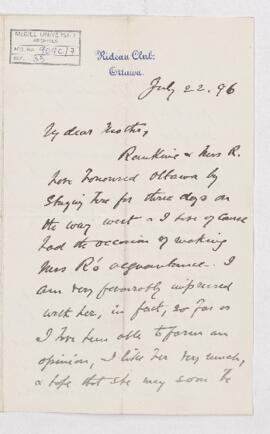 McGILL UNIVERSITY
ARCHIVES
ACC. NO. 909C/7
REF. 33
Rideau Club,
Ottawa.
July 22. 96
My dear Mother,
Rankine & Mrs R.
have honoured Ottawa by
staying here for three days on
the way west & I have of course
had the occasion of making
Mrs R's acquaintance. I
am very favourably impressed
with her, in fact, so far as
I have been able to form an
opinion, I like her very much,
& hope that she may soon be